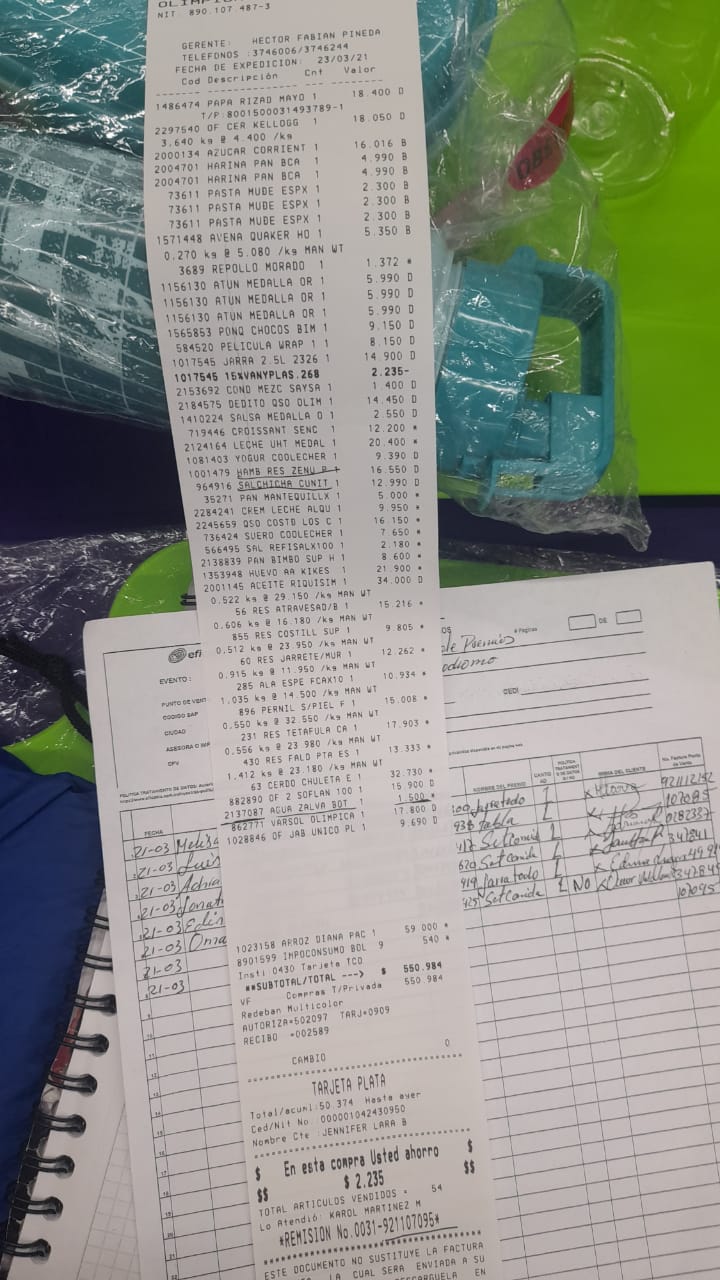 NIT 890.107.487-3
GERENTE: HECTOR FABIAN PINEDA
TELEFONOS :3746006/3746244
FECHA DE EXPEDICION: 23/03/21
Cod Descripción Cnt Valor
1486474 PAPA RIZAD MAYO 1 18.400 D
T/P:8001500031493789-1
2297540 OF CER KELLOGG 1 18.050 D
3.640 kg @ 4.400 /kg
2000134 AZUCAR CORRIENT 1 16.016 B
2004701 HARINA PAN BCA 1 4.990 B
2004701 HARINA PAN BCA 1 4.990 B
73611 PASTA MUDE ESPX 1 2.300 B
73611 PASTA MUDE ESPX 1 2.300 B
73611 PASTA MUDE ESPX 1 2.300 B
1571448 AVENA QUAKER HO 1 5.350 B
0.270 kg @ 5.080 /kg MAN WT
3689 REPOLLO MORADO 1 1.372 *
1156130 ATUN MEDALLA OR 1 5.990 D
1156130 ATUN MEDALLA OR 1 5.990 D
1156130 ATUN MEDALLA OR 1 5.990 D
1565853 PONQ CHOCOS BIM 1 9.150 D
584520 PELICULA WRAP 1 1 8.150 D
1017545 JARRA 2.5L 2326 1 14.900 D
1017545 15%VANYPLAS.268 2.235-
2153692 COND MEZC SAYSA 1 1.400 D
2184575 DEDITO QSO OLIM 1 14.450 D
1410224 SALSA MEDALLA O 1 2.550 D
719446 CROISSANT SENC 1 12.200 *
2124164 LECHE UHT MEDAL 1 20.400 *
1081403 YOGUR COOLECHER 1 9.390 D
1001479 HAMB RES ZENU P 1 16.550 D
964916 SALCHICHA CUNIT 1 12.990 D
35271 PAN MANTEQUILLX 1 5.000 *
2284241 CREM LECHE ALQU 1 9.950 *
2245659 QSO COSTB LOS C 1 16.150 *
736424 SUERO COOLECHER 1 7.650 *
566495 SAL REFISALX100 1 2.180 *
2138839 PAN BIMBO SUP H 1 8.600 *
1353948 HUEVO AA KIKES 1 21.900 *
2001145 ACEITE RIQUISIM 1 34.000 D
0.522 kg @ 29.150 /kg MAN WT
56 RES ATRAVESAD/B 1 15.216 *
0.606 kg @ 16.180 /kg MAN WT
855 RES COSTILL SUP 1 9.805 *
0.512 kg @ 23.950 /kg MAN WT
60 RES JARRETE/MUR 1 12.262 *
0.915 kg @ 11.950 /kg MAN WT
285 ALA ESPE FCAX10 1 10.934 *
1.035 kg @ 14.500 /kg MAN WT
896 PERNIL S/PIEL F 1 15.008 *
0.550 kg @ 32.550 /kg MAN WT
231 RES TETAFULA CA 1 17.903 *
0.556 kg @ 23.980 /kg MAN WT
430 RES FALD PTA ES 1 13.333 *
1.412 kg @ 23.180 /kg MAN WT
63 CERDO CHULETA E 1 32.730 *
882890 OF 2 SOFLAN 100 1 15.900 D
2137087 AGUA ZALVA BOT 1 1.500 *
862771 VARSOL OLIMPICA 1 17.800 D
1028846 OF JAB UNICO PL 1 9.690 D
1023158 ARROZ DIANA PAC 1 59 000 *
8901599 IMPOCONSUMO BOL 9 540 *
Insti 0430 Tarjeta TCO
**SUBTOTAL/TOTAL ---> $ 550.984
VF Compras T/Privada 550 984
Redeban Multicolor
AUTORIZA=502097 TARJ=0909
RECIBO =002589
CAMBIO 0
TARJETA PLATA
Total/acuml:50.374 Hasta ayer
Ced/Nit No.:000001042430950
Nombre Cte :JENNIFER LARA B
$ En esta compra Usted ahorro $
$$ $ 2.235 $$
TOTAL ARTICULOS VENDIDOS = 54
Lo Atendió: KAROL MARTINEZ M
*REMISION No.0031-921107095*
ESTE DOCUMENTO NO SUSTITUYE LA FACTURA
LA CUAL SERA ENVIADA A SU
EN
efi
EVENTO :
PUNTO DE VENT
CODIGO SAP
CIUDAD
DPV
# Páginas
DE
de Premios
CEDI
FECHA
NOMBRE DEL PREMIO
FIRMA DEL CLIENTE
No. Factura Punto de Venta
21-03
21-03 Luis
21-03
21-03
21-03
21-03 Oma
21-03
21-03
Tabla
Set Comida
Set Comida
Jarra todo
Set Comida 1 NO
107095